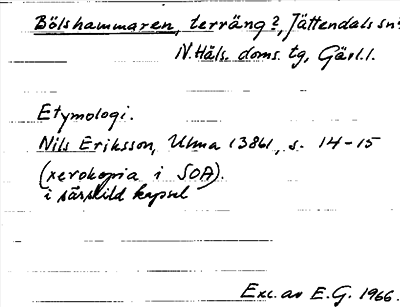 Bölshammaren, terräng?, Jättendals sn
N. Häls. doms. tg, Gävl. l.
Etymologi.
Nils Eriksson, Ulma 13861, s. 14-15
(xerokopia i SOA).
i särskild kapsel
Exc. av E.G. 1966.